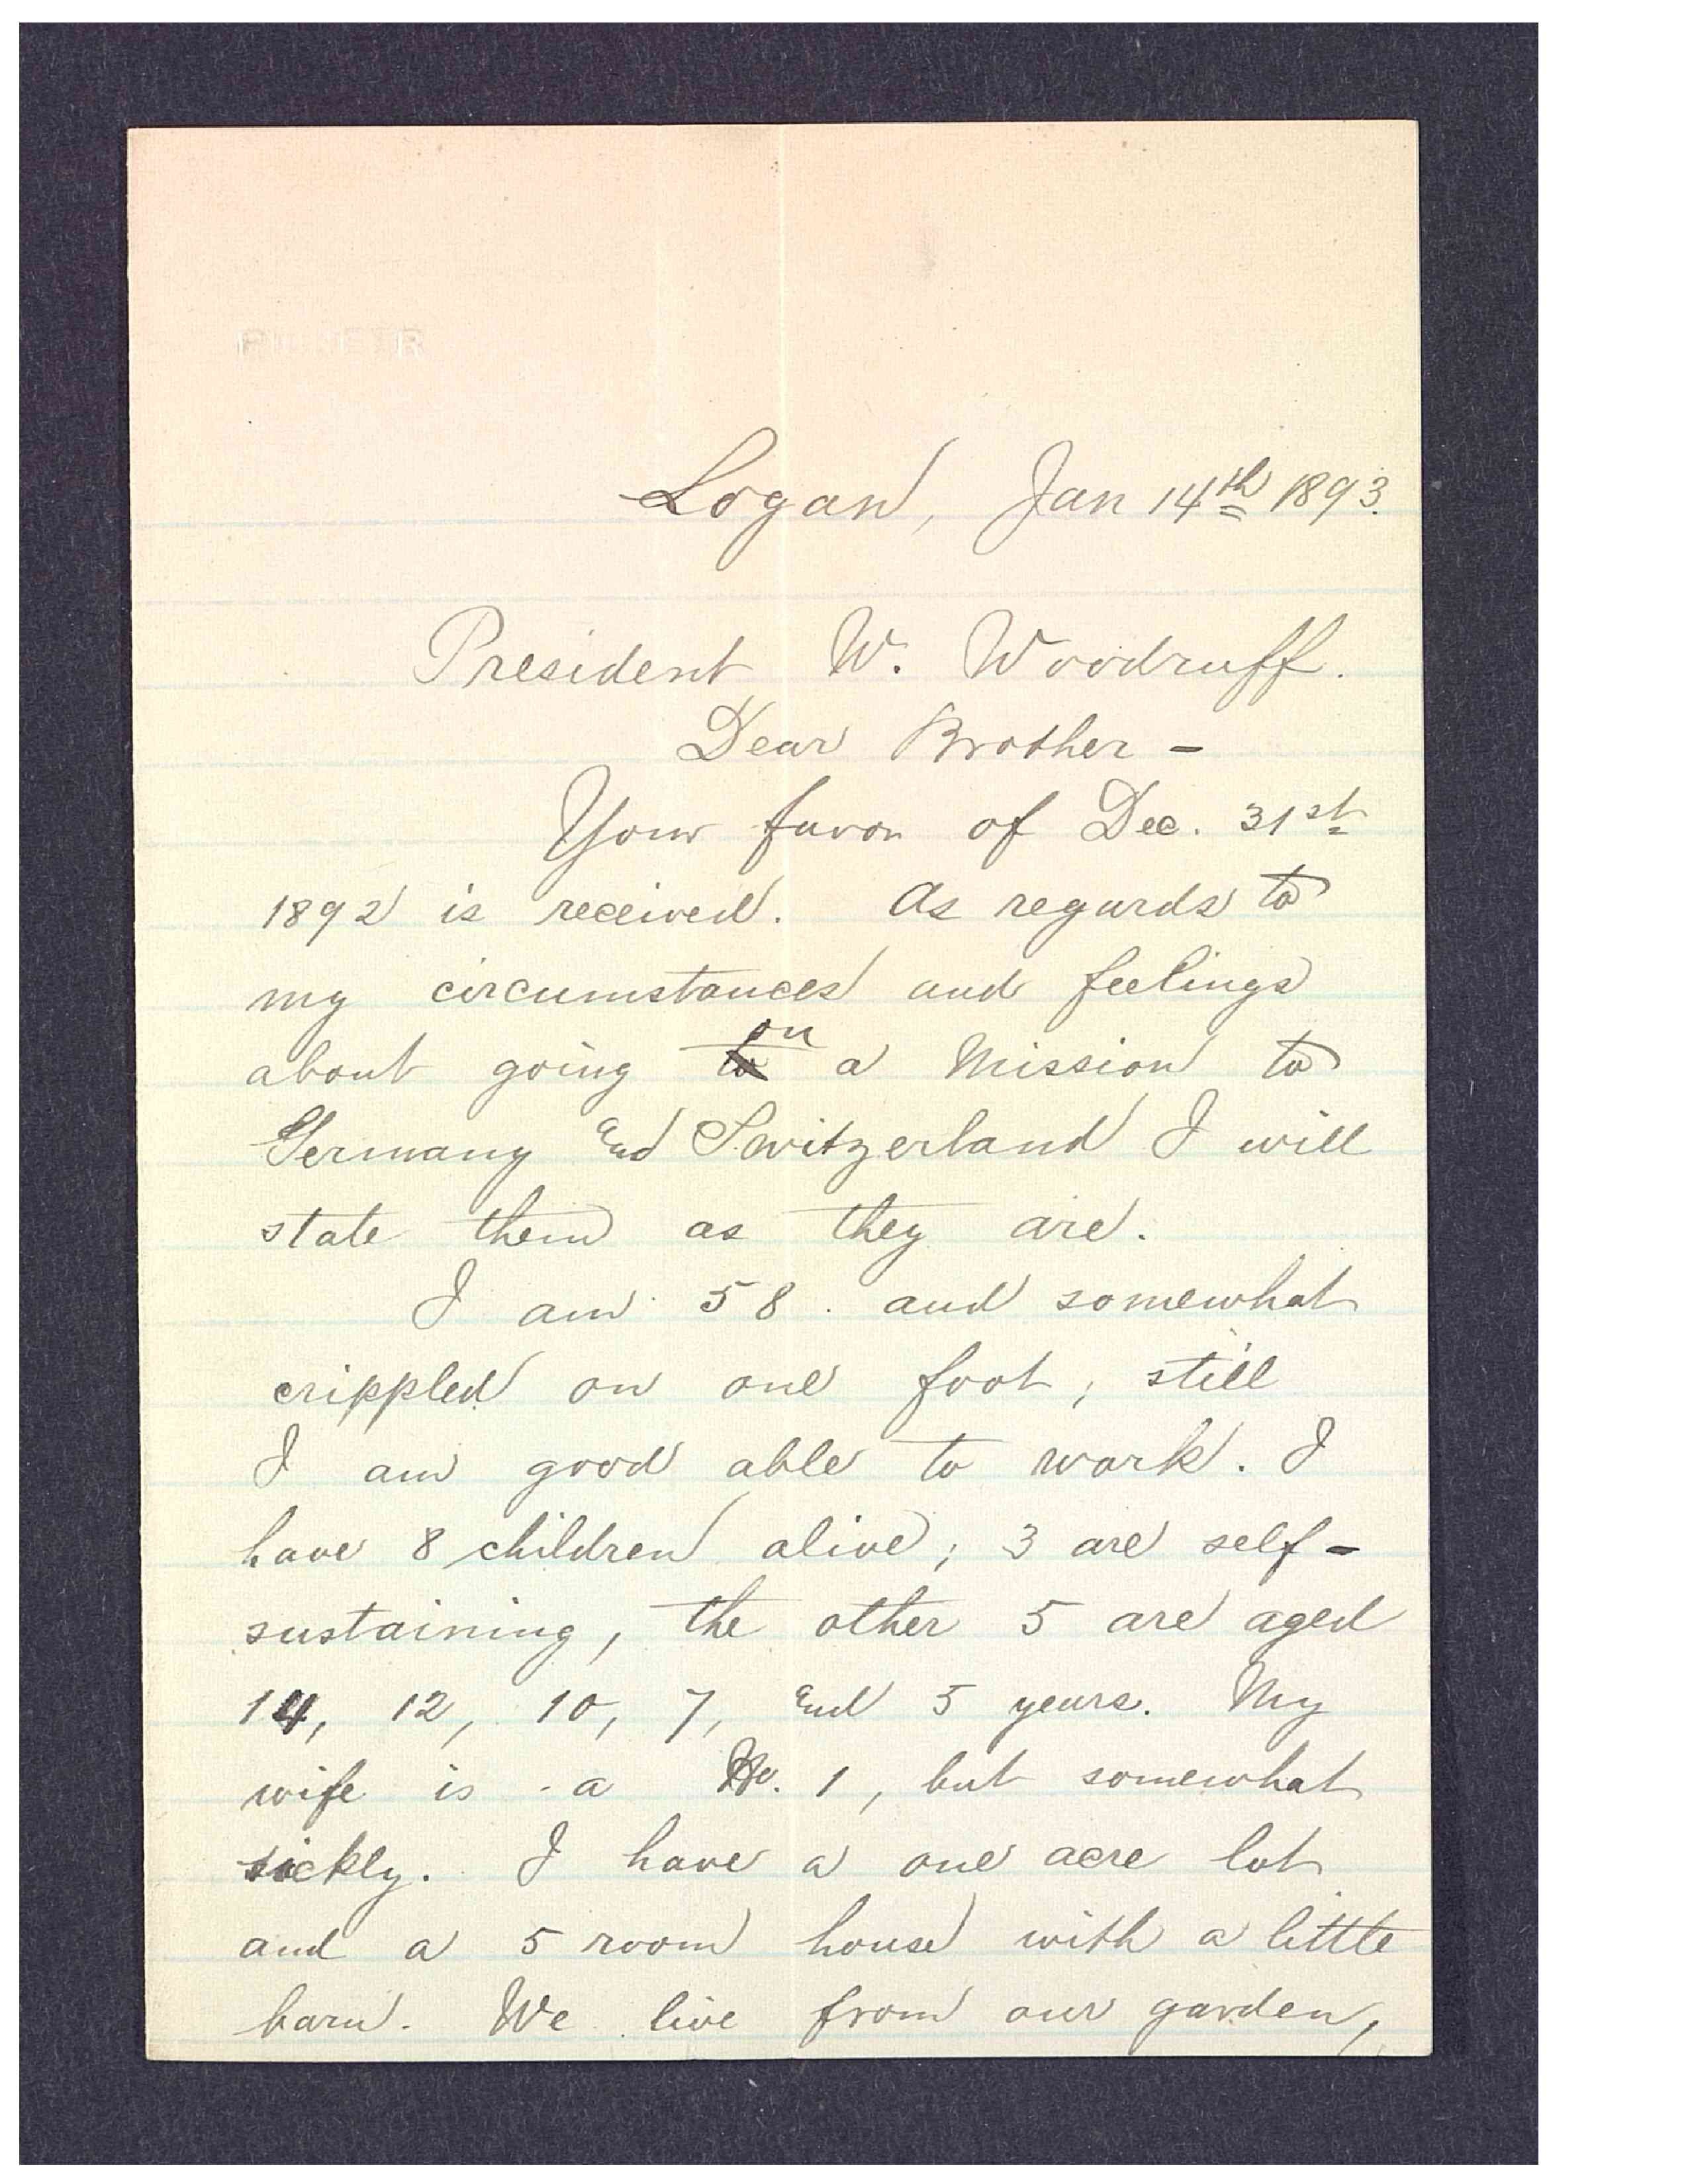 Logan, Jan 14th 1893.
President W. Woodruff.
Dear Brother -
Your favor of Dec. 31st
1892 is received. As regards to
my circumstances and feelings
about going to on a Mission to
Germany and Switzerland I will
state them as they are.
I am 58. and somewhat
crippled on one foot, still
I am good able to work. I
have 8 children alive; 3 are self-
sustaining, the other 5 are aged
14, 12, 10, 7, and 5 years. My
wife is a No. 1, but somewhat
sickly. I have a one acre lot
and a 5 room house with a little
barn. We live from our garden,